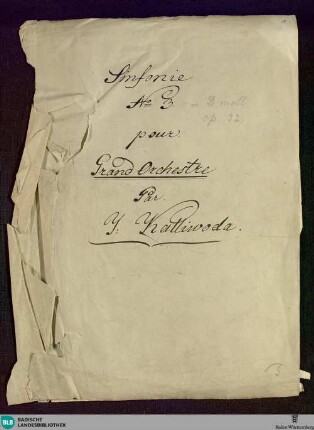 Sinfonie
No 3
D moll
op. 32
pour
Grand Orchestre
Par
J. Kalliwoda.
BLB BADISCHE
LANDESBIBLIOTHEK
Baden-Württemberg